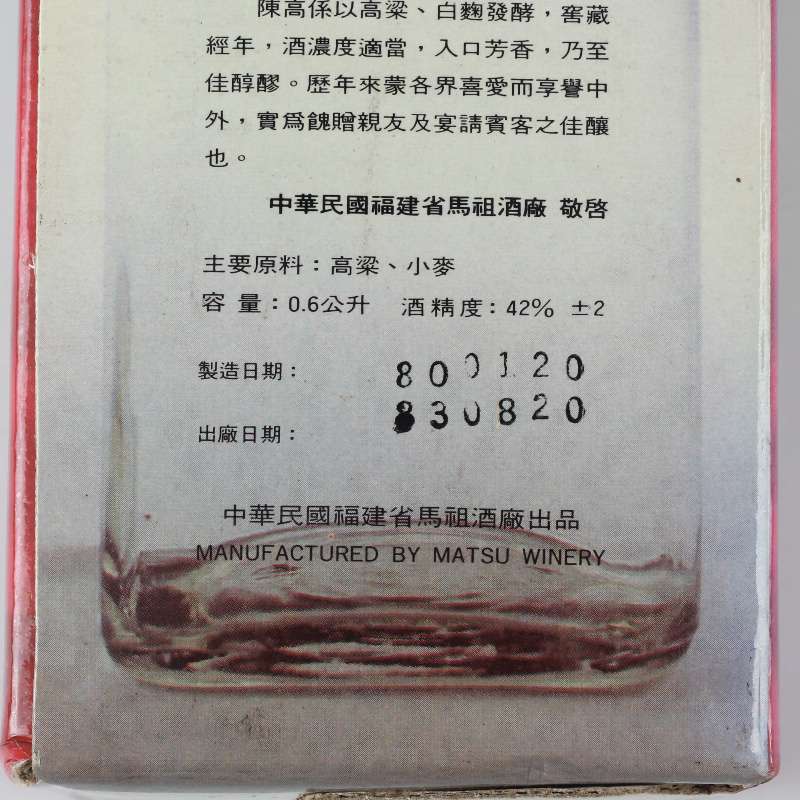 陳高係以高粱、白麴發酵，窖藏
經年，酒濃度適當，入口芳香，乃至
佳醇醪。歷年來蒙各界喜愛而享譽中
外，實為餽贈親友及宴請賓客之佳釀
也。
中華民國福建省馬祖酒廠 敬啓
主要原料：高粱、小麥
容 量：0.6公升 酒精度：42% ±2
製造日期： 800120
出廠日期： 830820
中華民國福建省馬祖酒廠出品
MANUFACTURED BY MATSU WINERY